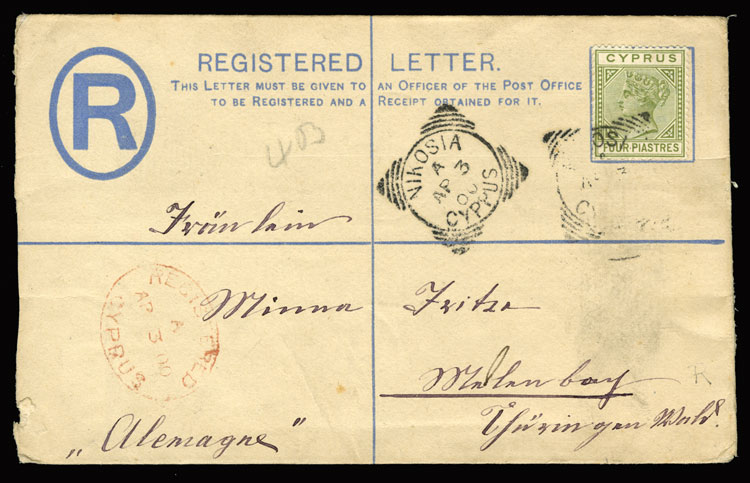 R
REGISTERED LETTER.
THIS LETTER MUST BE GIVEN TO AN OFFICER OF THE POST OFFICE
TO BE REGISTERED AND A RECEIPT OBTAINED FOR IT.
CYPRUS
FOUR PIASTRES
NIKOSIA
A
AP 3
00
CYPRUS
Fräulein
Minna Fritze
REGISTERED
A
AP 3 00
CYPRUS
Melenbach
Thüringen Wald.
„Alemagne"
R